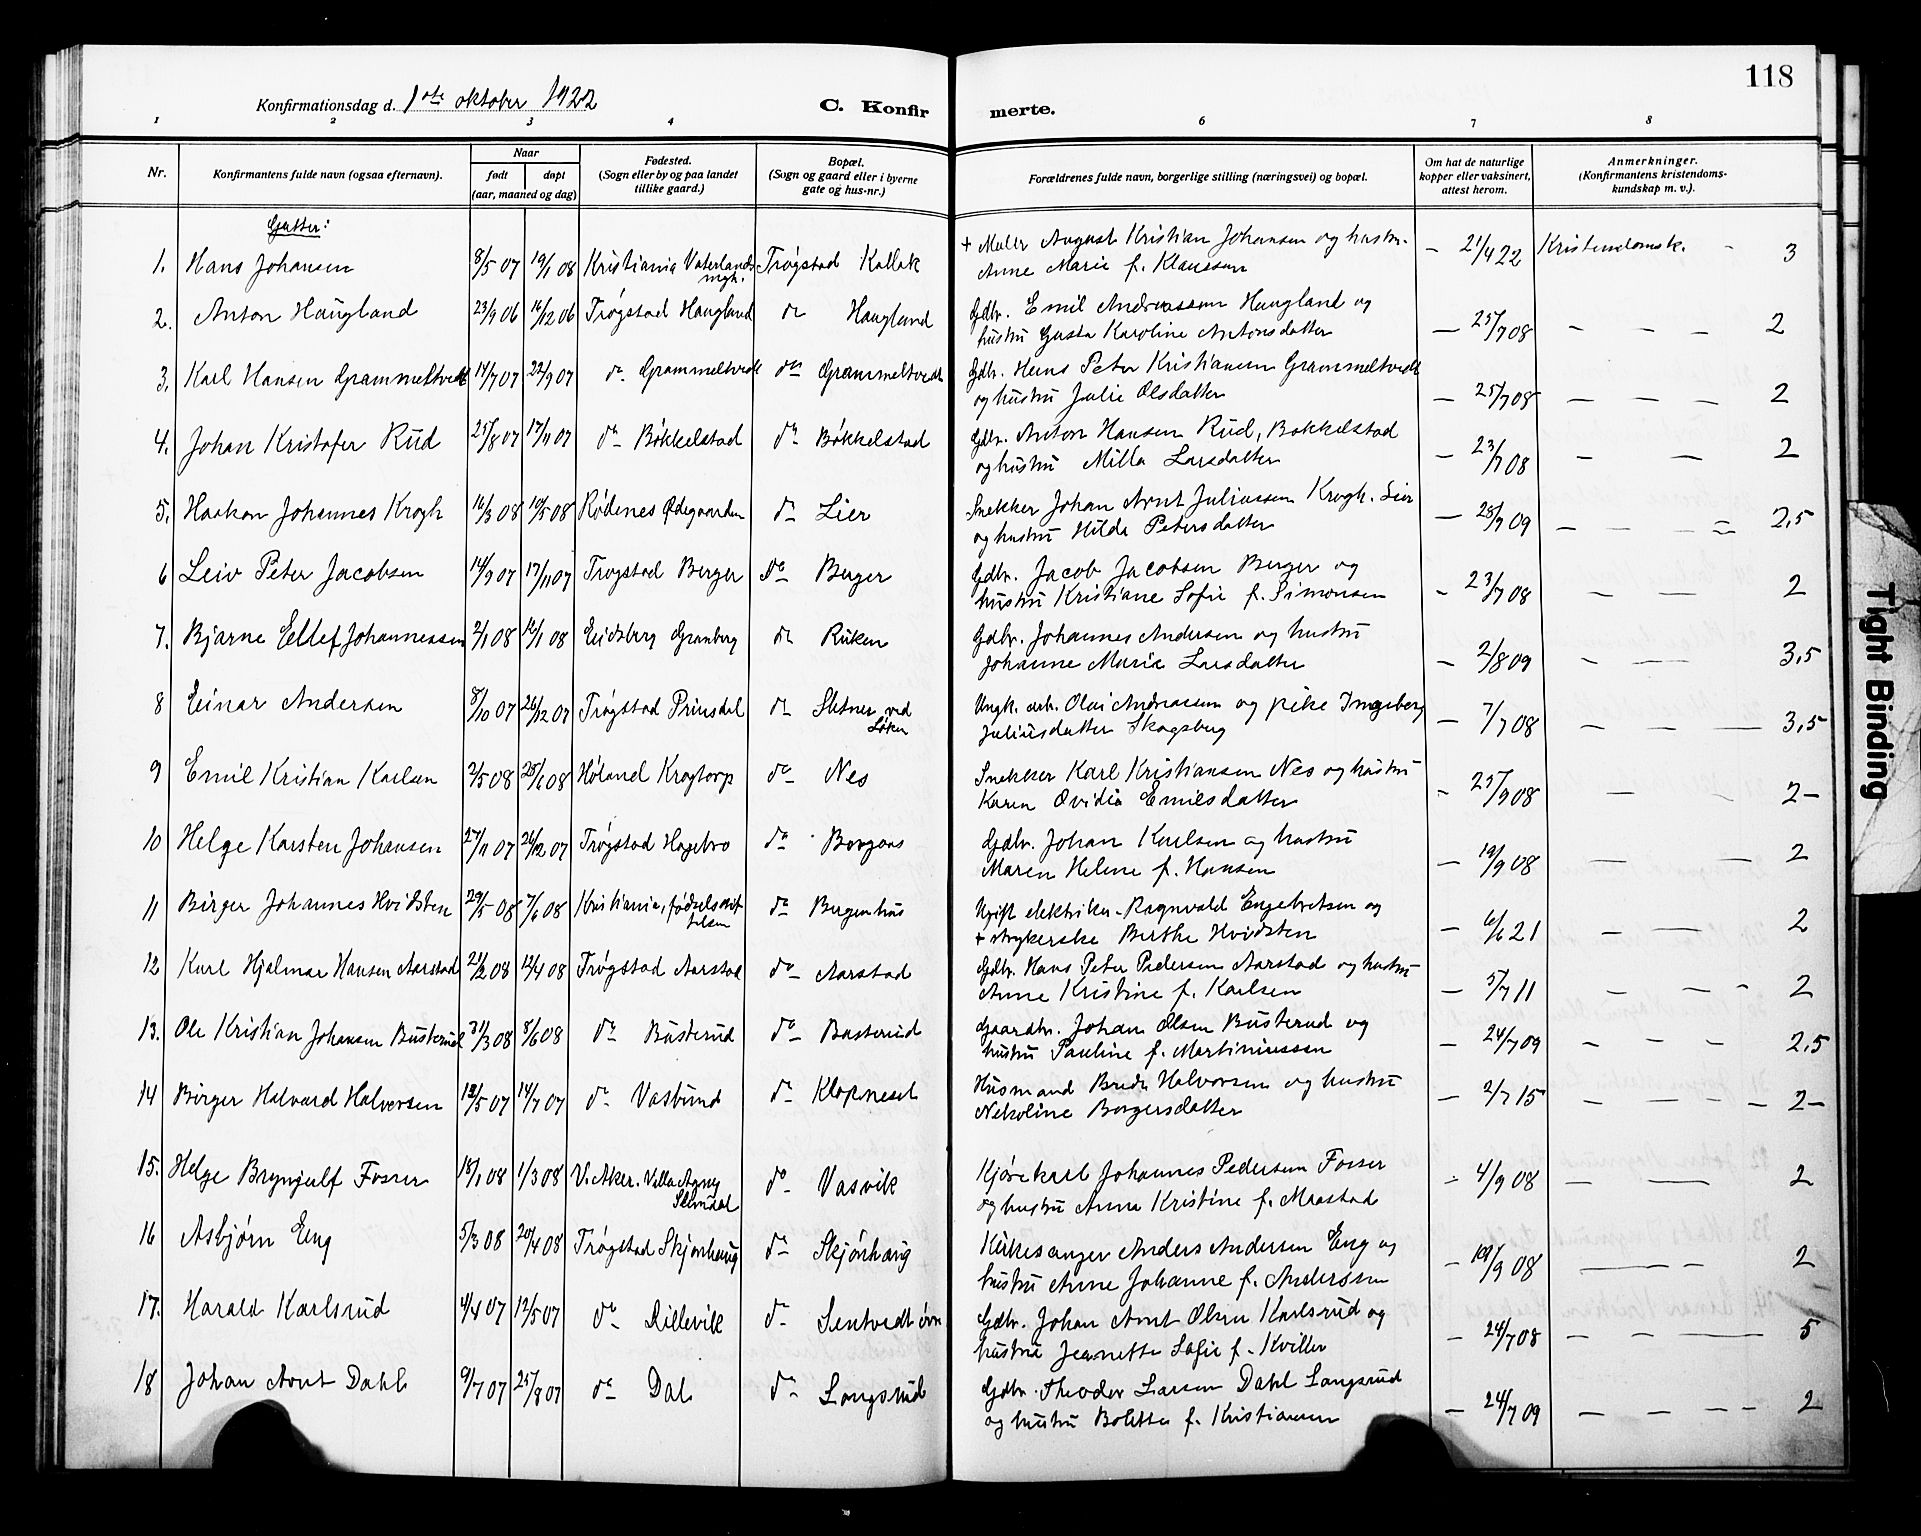 118
Konfirmationsdag d. 1ste oktober 1922
C. Konfirmerte.
1 2 3 4 6 7 8
Nr. Konfirmantens fulde navn (ogsaa efternavn). Naar født døpt (aar, maaned og dag) Fødested. (Sogn eller by og paa landet tillike gaard.) Bopæl. (Sogn og gaard eller i byerne gate og hus-nr.) Forældrenes fulde navn, borgerlige stilling (næringsvei) og bopæl. Om hat de naturlige kopper eller vaksinert, attest herom. Anmerkninger. (Konfirmantens kristendomskundskap m. v.).
Gutter:
1. Hans Johansen 8/5 07 19/1 08 Kristiania Vaterlands mgh. Trøgstad Kallak + Maler August Kristian Johansen og hustr.
Anne Marie f. Klaussen — 21/4 22 Kristendomsk. - 3
2. Anton Haugland 23/9 06 16/12 06 Trøgstad Haugland do Haugland Gdbr. Emil Andreassen Haugland og
hustru Gusta Karoline Antonsdatter — 25/7 08 — — — 2
3. Karl Hansen Grammeltvedt 14/7 07 22/9 07 do Grammeltvedt do Grammeltvedt Gdbr. Hans Peter Kristiansen Grammeltvedt
og hustru Julie Olsdatter — 25/7 08 — — — 2
4. Johan Kristofer Rud 25/8 07 17/11 07 do Bøkkelstad do Bøkkelstad Gdbr. Anton Hansen Rud, Bøkkelstad
og hustru Milla Larsdatter — 23/7 08 — — 2
5. Haakon Johannes Krogh 16/3 08 10/5 08 Rødenes Ødegaarden do Lier Snekker Johan Arnt Juliussen Krogh. Lier
og hustru Hilda Petersdatter — 28/7 09 — — — = 2,5
6 Leiv Peter Jacobsen 14/9 07 17/11 07 Trøgstad Berger do Berger Gdbr. Jacob Jacobsen Berger og
hustru Kristiane Sofie f. Simonsen - 23/7 08 — — 2
7. Bjarne Ellef Johannessen 2/1 08 16/1 08 Eidsberg Granberg do Ruken Gdbr. Johannes Andersen og hustru
Johanne Marie Larsdatter — 2/8 09 — — 3,5
8 Einar Andersen 8/10 07 26/12 07 Trøgstad Prinsdal do Sletner ved Løken Ungk. arb. Olai Andreassen og pike Ingeborg
Juliusdatter Skogsberg — 7/7 08 — — — 3,5
9 Emil Kristian Karlsen 2/5 08 28/6 08 Høland Krogtorp do Nes Snekker Karl Kristiansen Nes og hustru
Karen Ovidia Emilsdatter - 25/9 08 — 2-
10 Helge Karsten Johansen 27/11 07 26/12 07 Trøgstad Hagebro do Borgaas Gdbr. Johan Karlsen og hustru
Maren Helene f. Hansen — 19/9 08 — — 2
11 Birger Johannes Hvidsten 29/5 08 7/6 08 Kristiania, fødselsstiftelsen do Bergenhus Ugift elektriker Ragnvald Engebretsen og
+ strykerske Berthe Hvidsten — 6/6 21 — — 2
12 Karl Hjalmar Hansen Aarstad 21/2 08 12/4 08 Trøgstad Aarstad do Aarstad Gdbr. Hans Peter Pedersen Aarstad og hustru
Anne Kristine f. Karlsen — 5/7 11 — — - 2
13. Ole Kristian Johansen Busterud 31/3 08 8/6 08 do Busterud do Busterud Gaardbr. Johan Olsen Busterud og
hustru Pauline f. Martiniussen — 24/7 09 — — — 2,5
14 Birger Halvard Halvorsen 12/5 07 14/7 07 do Vasbund do Klopneset Husmand Brede Halvorsen og hustru
Nikoline Borgersdatter — 2/7 15 — — — — 2-
15. Helge Brynjulf Fosser 18/1 08 1/3 08 V. Aker. Villa Agny Slemdal do Vasvik Kjørekarl Johannes Pedersen Fosser
og hustru Anna Kristine f. Maastad — 4/9 08 — — 2
16 Asbjørn Eng 5/3 08 20/4 08 Trøgstad Skjønhaug do Skjønhaug Kirkesanger Anders Andersen Eng og
hustru Anne Johanne f. Andersen — 19/9 08 — — - 2
17. Harald Karlsrud 4/4 07 12/5 07 do Lillevik do Sentvedt øvre Gdbr. Johan Arnt Olsen Karlsrud og
hustru Jeanette Sofie f. Kviller — 24/7 08 — — — 5
18 Johan Arnt Dahl 9/7 07 25/8 07 do Dal do Langsrud Gdbr. Theodor Larsen Dahl Langsrud
og hustru Bolette f. Kristiansen — 24/7 09 — — - - 2
Tight Binding